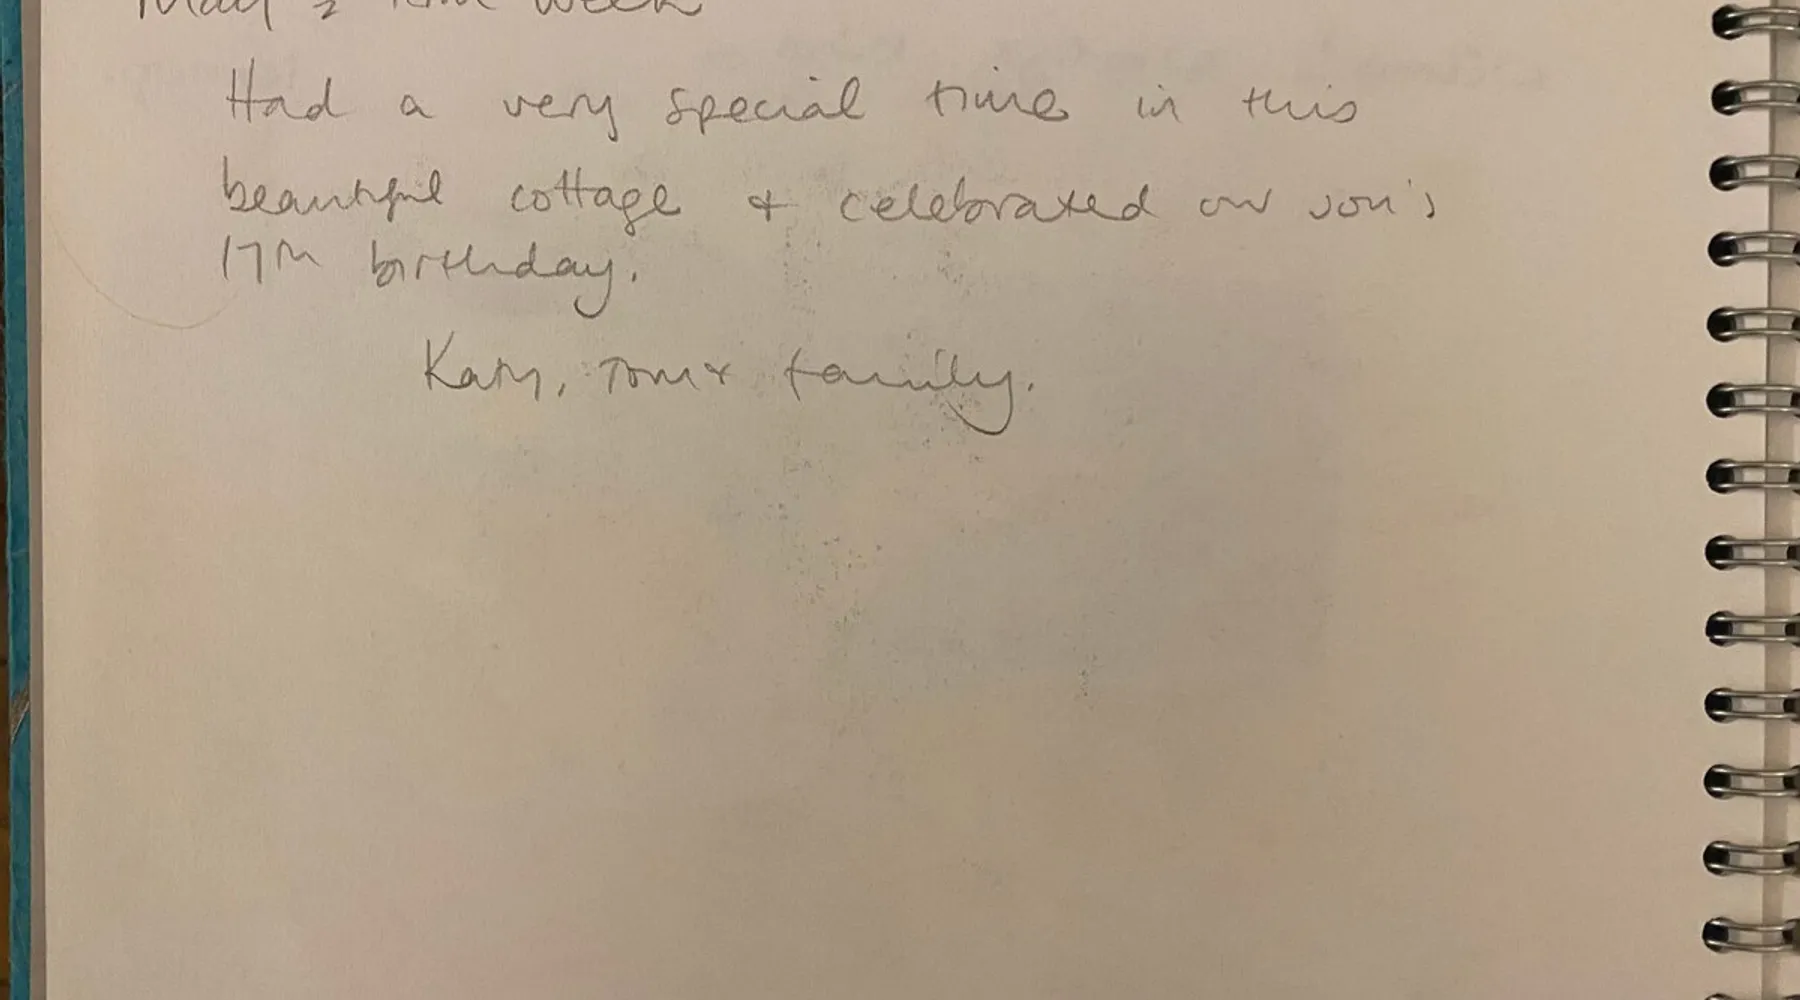 May ½ term week
Had a very special time in this
beautiful cottage & celebrated our son's
17th birthday.
Katy, Tom & family.